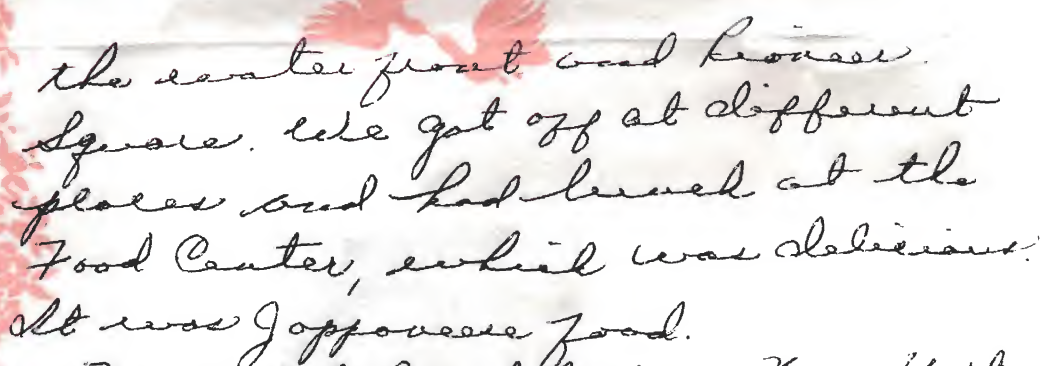 the water front and Pioneer
Square. We got off at different
places and had lunch at the
Food Center, which was delicious.
It was Jappaneese food.